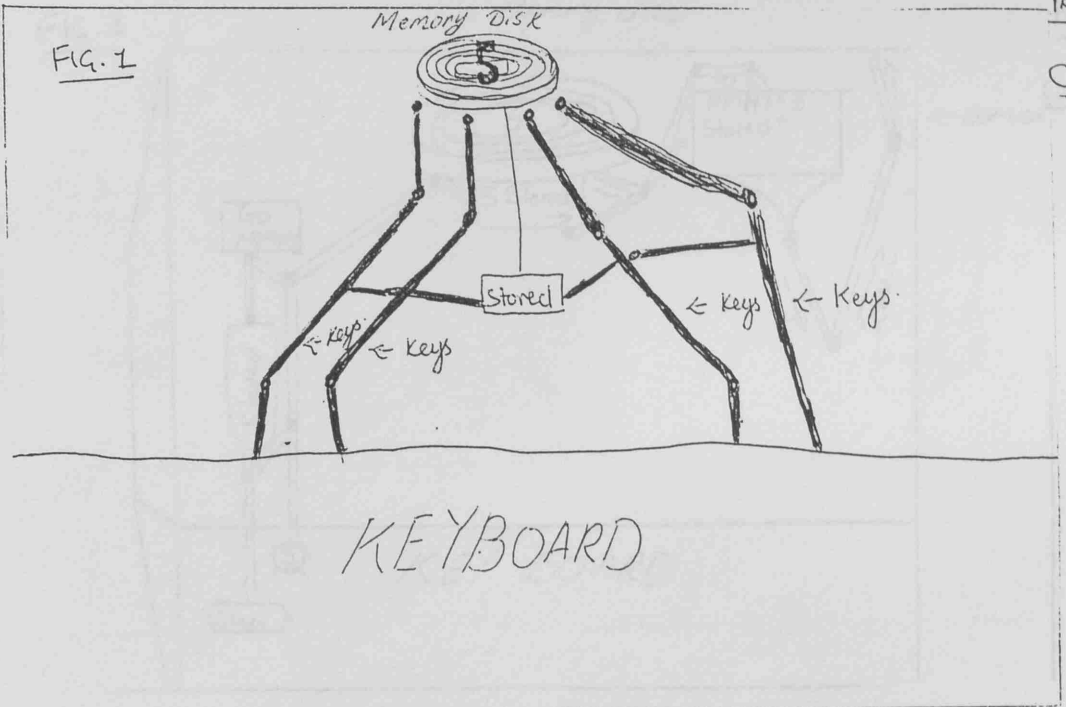 Memory Disk
FIG. 1
Stored
← Keys
← Keys.
← Keys.
← Keys
KEYBOARD